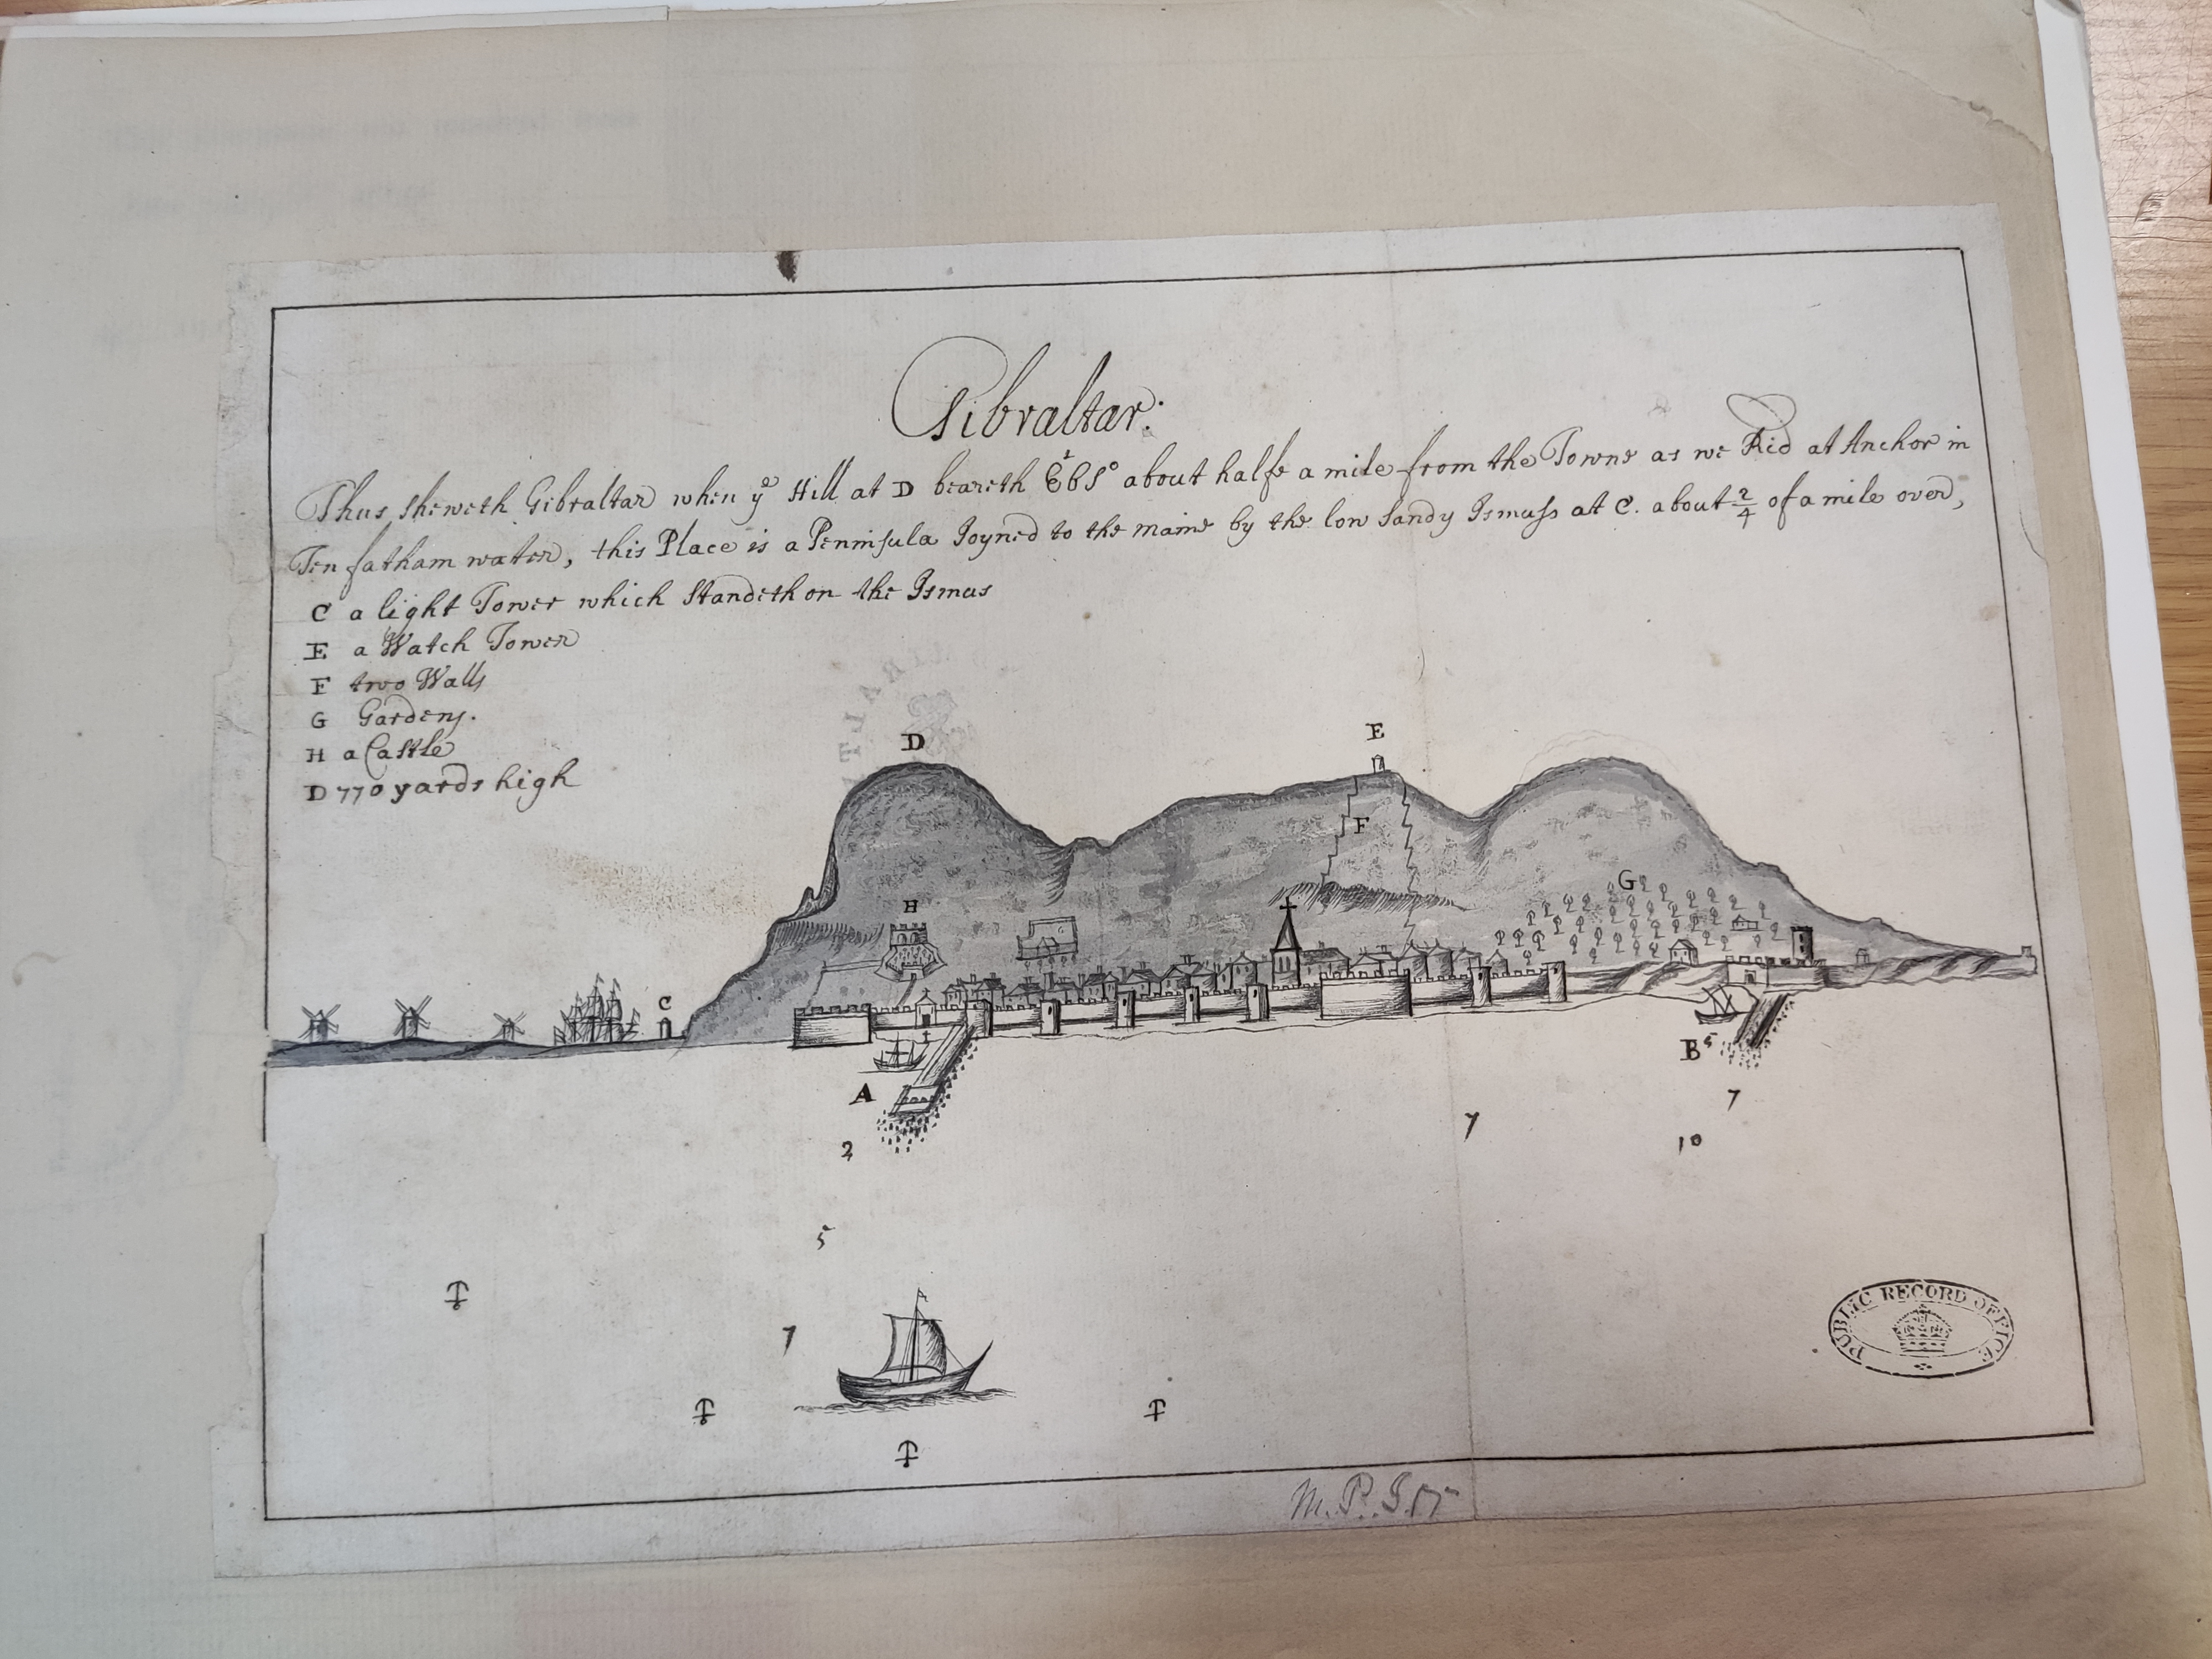 Gibraltar:
Thus sheweth Gibraltar when yᵉ Hill at D beareth EbS° about halfe a mile from the Towne as we Rid at Anchor in
Ten fatham water, this Place is a Peninsula Joyned to the maine by the low Sandy Ismuss at C. about 2/4 of a mile over,
C a light Tower which Standeth on the Ismus
E a Watch Tower
F two Walls
G Gardens.
H a Castle
D 770 yards high
D
E
F
G
H
C
A
B
5
7
7
10
2
5
7
PUBLIC RECORD OFFICE